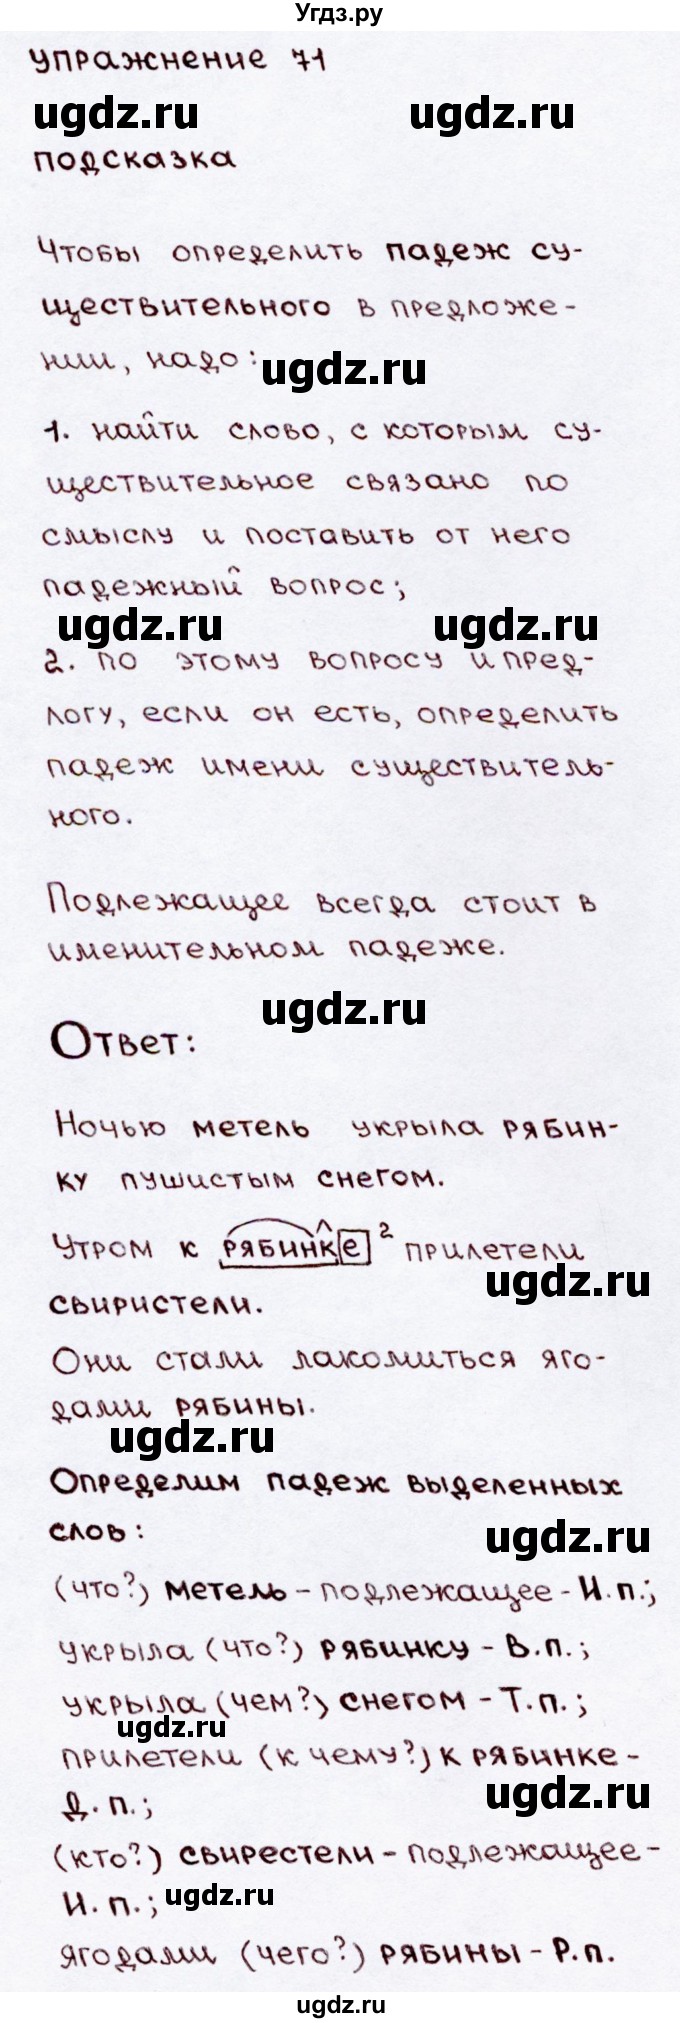 Угдз.ру
упражнение 71
ugdz.ru ugdz.ru
подсказка
Чтобы определить падеж су-
ществительного в предложе-
нии, надо:
ugdz.ru
1. найти слово, с которым су-
ществительное связано по
смыслу и поставить от него
падежный вопрос;
ugdz.ru ugdz.ru
2. по этому вопросу и пред-
логу, если он есть, определить
падеж имени существитель-
ного.
Подлежащее всегда стоит в
именительном падеже.
ugdz.ru
Ответ:
Ночью метель укрыла рябин-
ку пушистым снегом.
Утром к рябинке² прилетели
ugdz.ru
свиристели.
Они стали лакомиться яго-
дами рябины.
ugdz.ru
Определим падеж выделенных
слов:
ugdz.ru
(что?) метель - подлежащее - И.п.;
укрыла (что?) рябинку - В.п.;
укрыла (чем?) снегом - Т.п.;
ugdz.ru
прилетели (к чему?) к рябинке -
Д.п.;
ugdz.ru
(кто?) свирестели - подлежащее -
И.п.;
ugdz.ru
ягодами (чего?) рябины - Р.п.
ugdz.ru